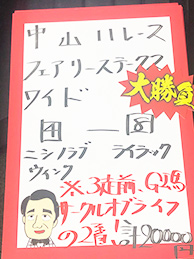 中山11レース
フェアリーステークス
ワイド
④ ー ⑧
ニシノラブ ライラック
ウィンク
大勝負
※3走前、G1馬
サークルオブライフ
の2着!!
¥20000円